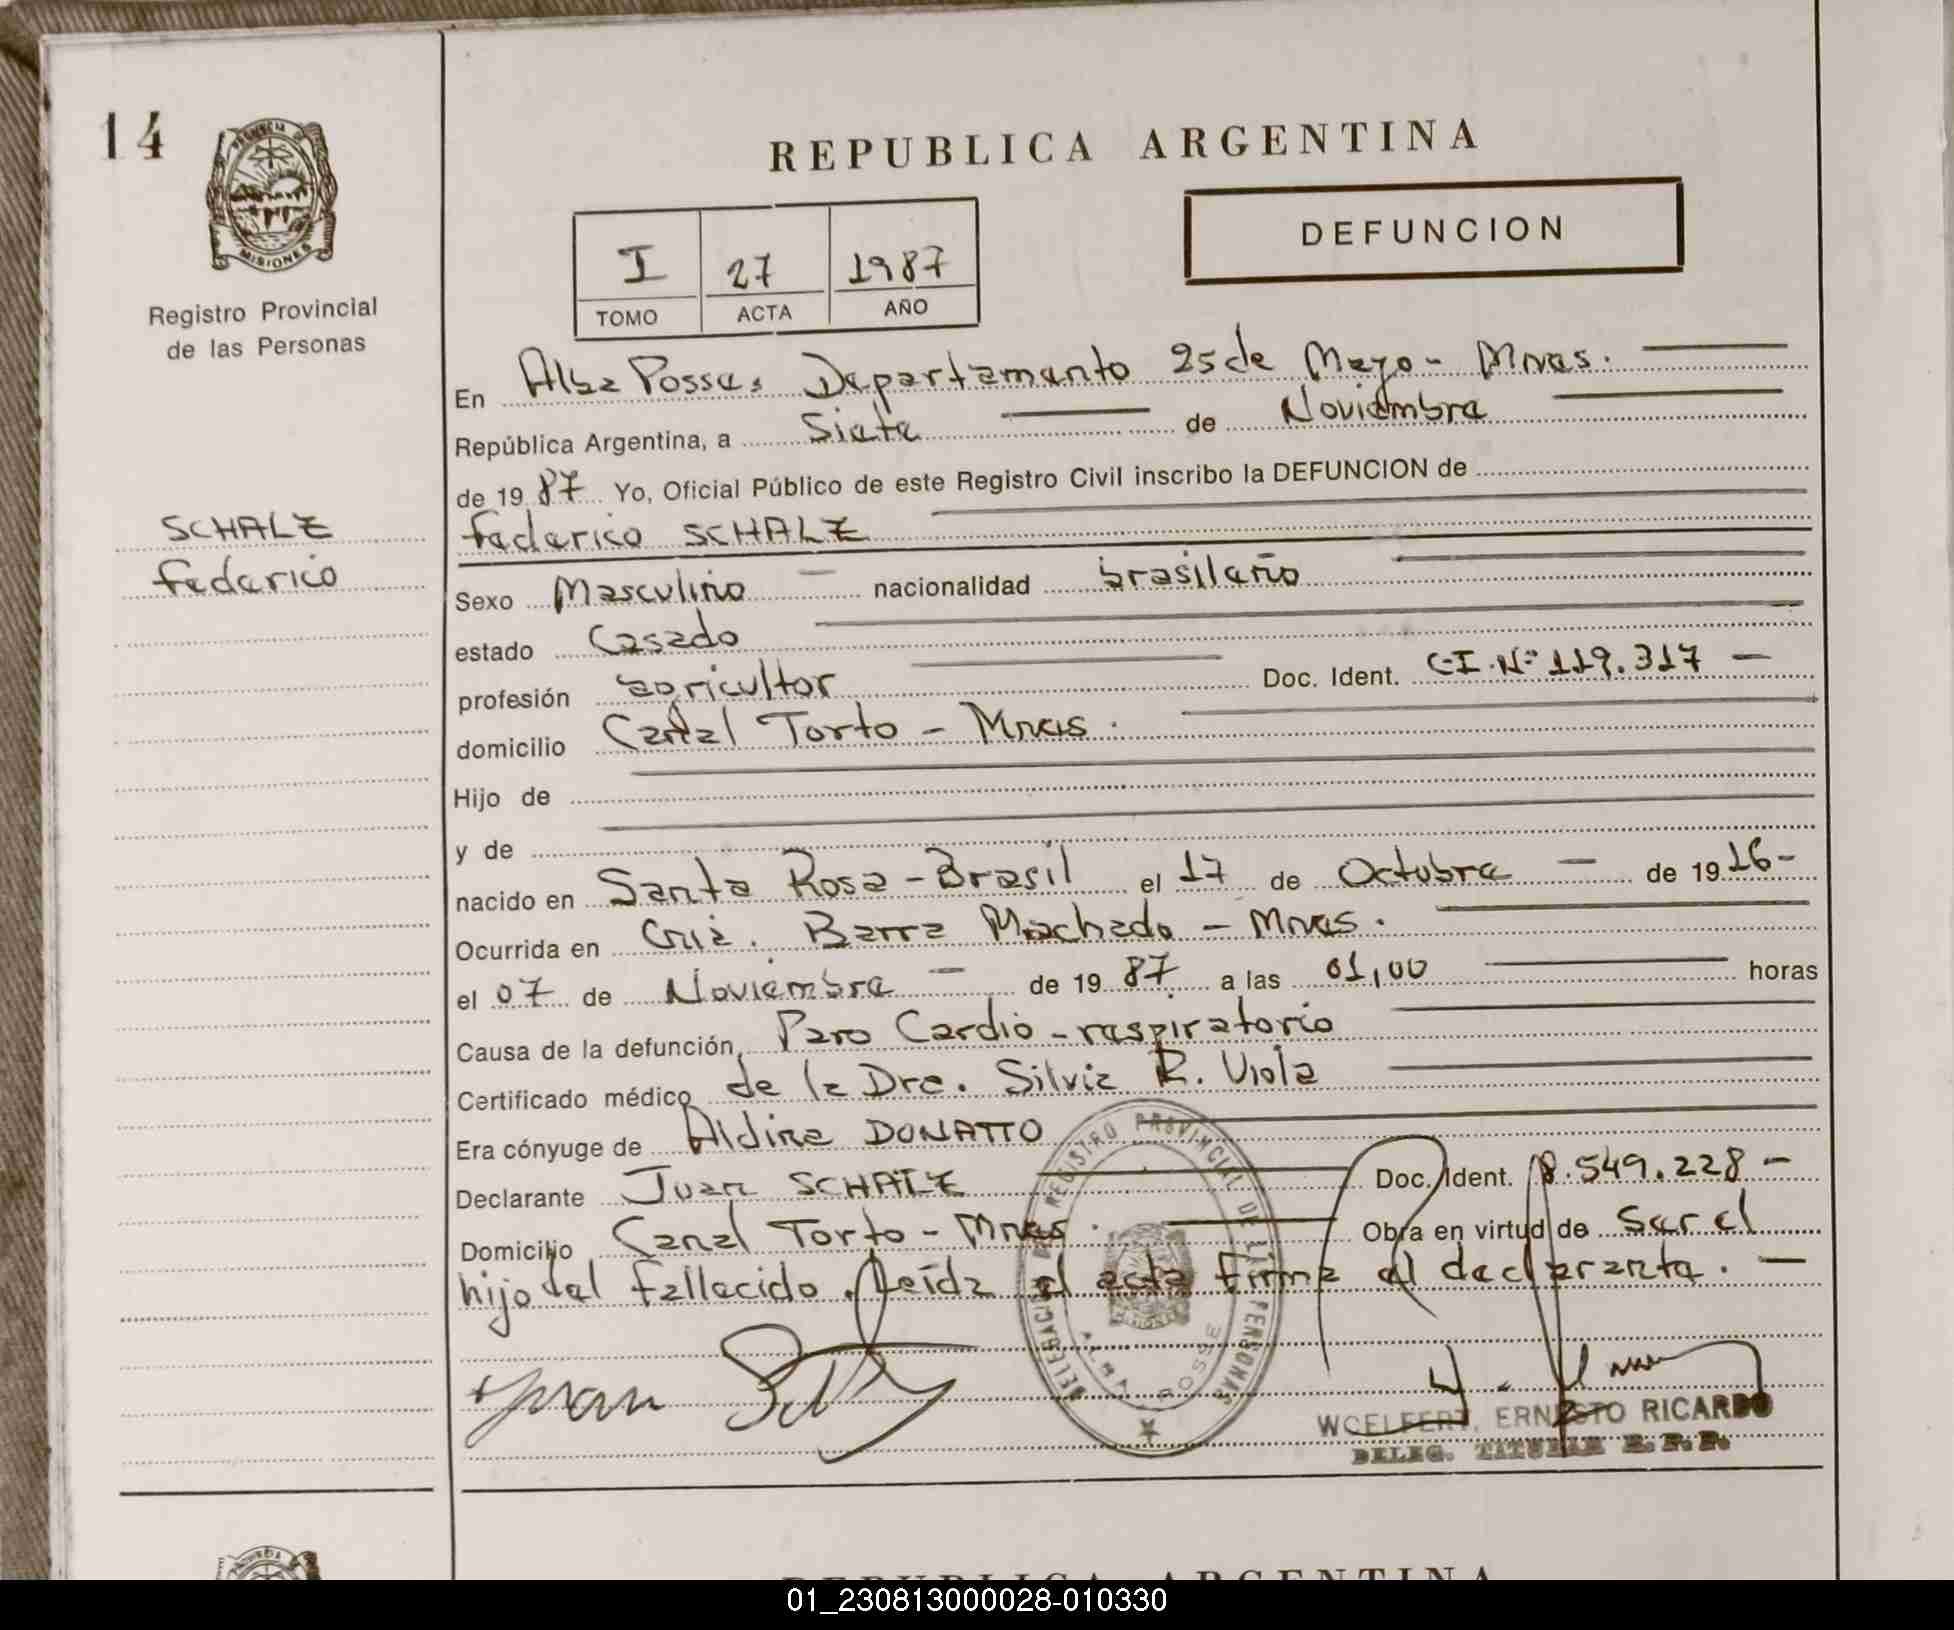 14
PROVINCIA DE
MISIONES
Registro Provincial
de las Personas
SCHALZ
Federico
REPUBLICA ARGENTINA
DEFUNCION
I 27 1987
TOMO ACTA AÑO
En Alba Posse, Departamento 25 de Mayo - Mnes.
República Argentina, a Siete de Noviembre
de 19 87 Yo, Oficial Público de este Registro Civil inscribo la DEFUNCION de
Federico SCHALZ
Sexo Masculino nacionalidad brasileño
estado Casado
profesión agricultor Doc. Ident. C.I. Nº 119.317 -
domicilio Canal Torto - Mnes.
Hijo de
y de
nacido en Santa Rosa - Brasil el 17 de Octubre - de 19 26 -
Ocurrida en Barra Machado - Mnes.
el 07 de Noviembre - de 19 87 a las 01,00 horas
Causa de la defunción, Paro Cardio-respiratorio
Certificado médico de la Dra. Silvia R. Viola
Era cónyuge de Aldina DONATTO
Declarante Juan SCHALZ Doc. Ident. 8.549.228 -
Domicilio Canal Torto - Mnes. Obra en virtud de Ser el
hijo del fallecido. Leída el acta firma el declarante. -
DELEGACION REGISTRO PROVINCIAL DE LAS PERSONAS
ALBA POSSE
Juan
WOELFERT, ERNESTO RICARDO
DELEG. TITULAR R. P. P.
REPUBLICA ARGENTINA
01_230813000028-010330